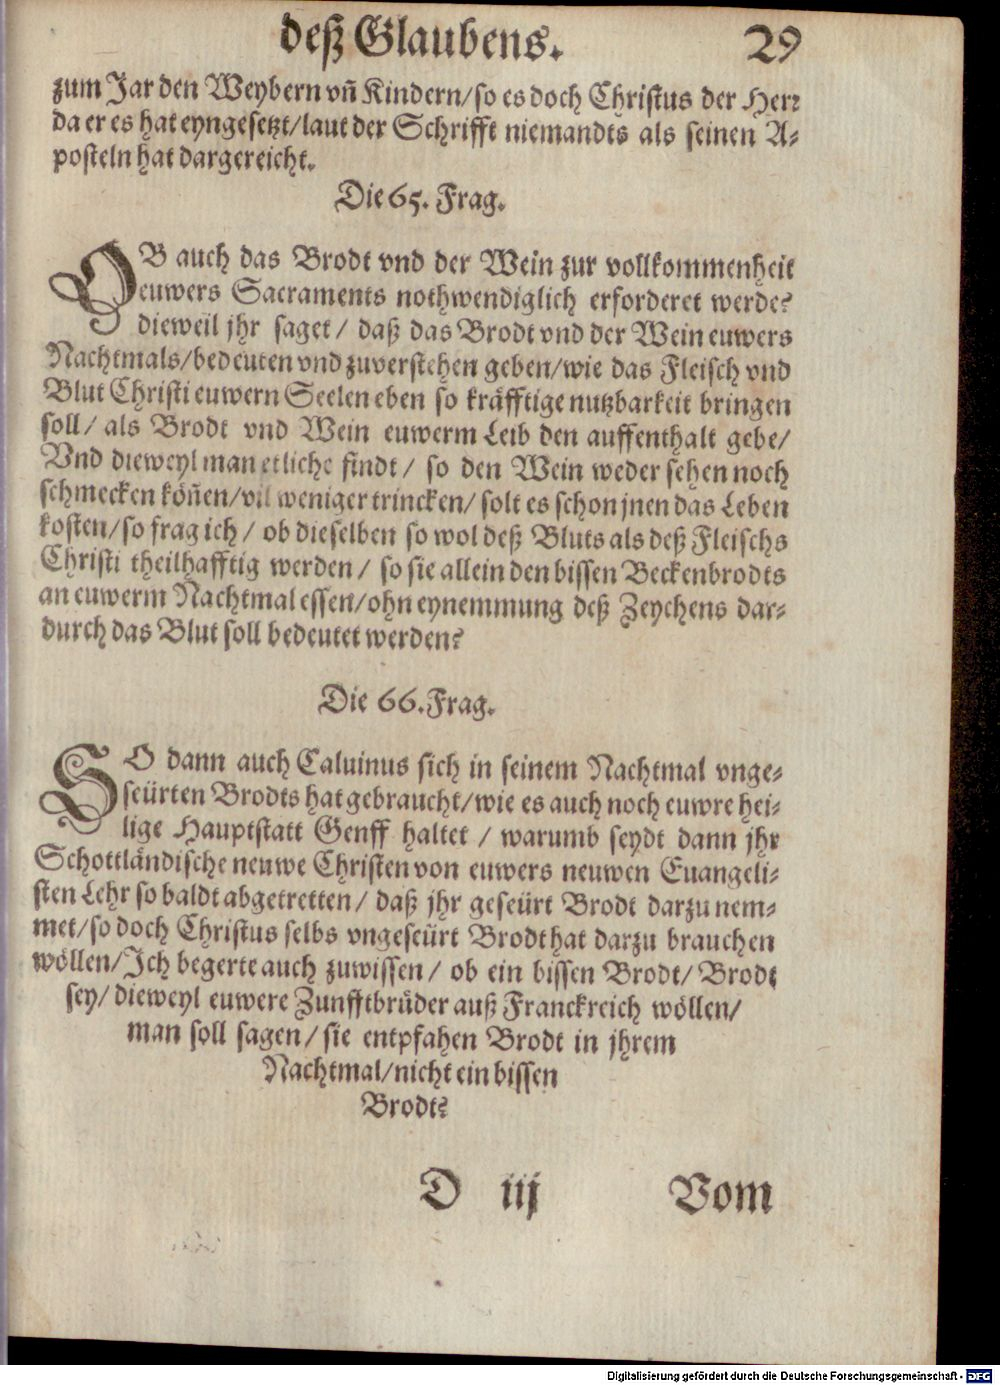 deß Glaubens. 29
zum Jar den Weybern vñ Kindern/so es doch Christus der Herr
da er es hat eyngesetzt/laut der Schrifft niemandts als seinen A-
posteln hat dargereicht.
Die 65. Frag.
OB auch das Brodt vnd der Wein zur vollkommenheit
euwers Sacraments nothwendiglich erforderet werde?
dieweil jhr saget/ daß das Brodt vnd der Wein euwers
Nachtmals/bedeuten vnd zuverstehen geben/wie das Fleisch vnd
Blut Christi euwern Seelen eben so kräfftige nutzbarkeit bringen
soll/ als Brodt vnd Wein euwerm Leib den auffenthalt gebe/
Vnd dieweyl man etliche findt/ so den Wein weder sehen noch
schmecken köñen/vil weniger trincken/ solt es schon jnen das Leben
kosten/so frag ich/ ob dieselben so wol deß Bluts als deß Fleischs
Christi theilhafftig werden/ so sie allein den bissen Beckenbrodts
an euwerm Nachtmal essen/ohn eynemmung deß Zeychens dar-
durch das Blut soll bedeutet werden?
Die 66. Frag.
SO dann auch Caluinus sich in seinem Nachtmal vnge-
seürten Brodts hat gebraucht/wie es auch noch euwre hei-
lige Hauptstatt Genff haltet / warumb seydt dann jhr
Schottländische neuwe Christen von euwers neuwen Euangeli-
sten Lehr so baldt abgetretten/ daß jhr geseürt Brodt darzu nem-
met/so doch Christus selbs vngeseürt Brodt hat darzu brauchen
wöllen/Ich begerte auch zuwissen/ ob ein bissen Brodt/ Brodt
sey/ dieweyl euwere Zunfftbrüder auß Franckreich wöllen/
man soll sagen/ sie entpfahen Brodt in jhrem
Nachtmal/nicht ein bissen
Brodt?
D iij Vom
Digitalisierung gefördert durch die Deutsche Forschungsgemeinschaft - DFG